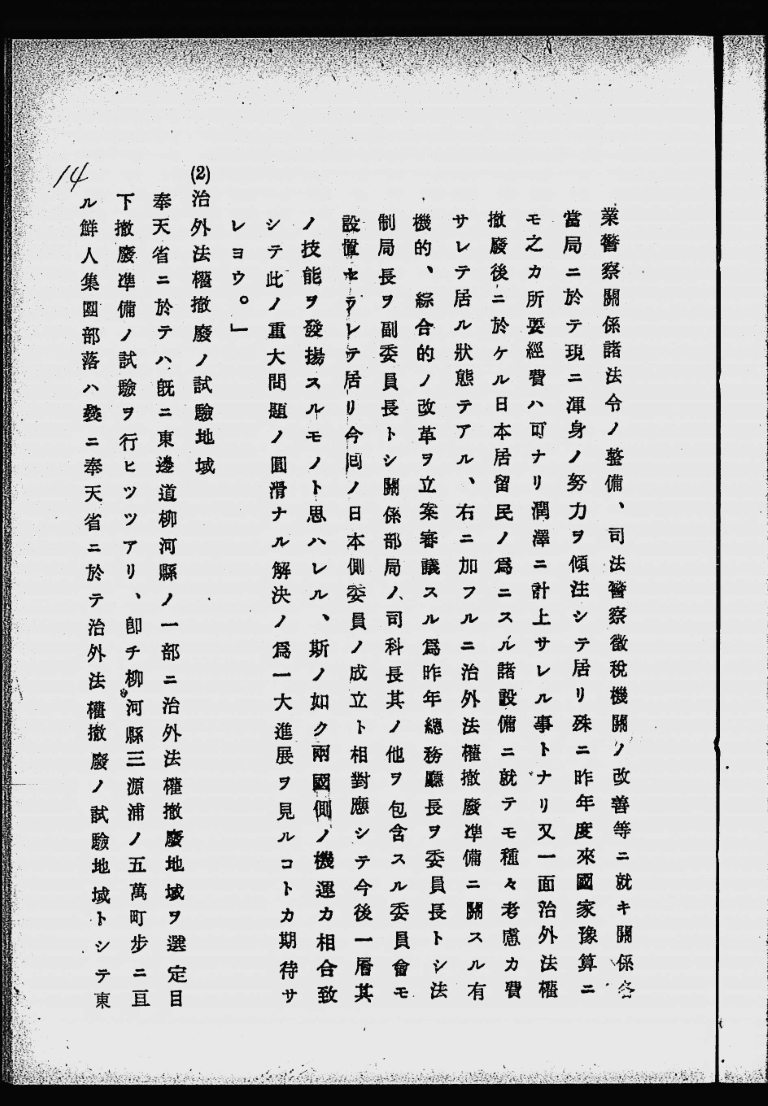 業警察關係諸法令ノ整備、司法警察徵稅機關ノ改善等ニ就キ關係各
當局ニ於テ現ニ渾身ノ努力ヲ傾注シテ居リ殊ニ昨年度來國家豫算ニ
モ之カ所要經費ハ可ナリ潤澤ニ計上サレル事トナリ又一面治外法權
撤廢後ニ於ケル日本居留民ノ爲ニスル諸設備ニ就テモ種々考慮カ費
サレテ居ル狀態テアル、右ニ加フルニ治外法權撤廢準備ニ關スル有
機的、綜合的ノ改革ヲ立案審議スル爲昨年總務廳長ヲ委員長トシ法
制局長ヲ副委員長トシ關係部局ノ、司科長其ノ他ヲ包含スル委員會モ
設置セラレテ居リ今囘ノ日本側委員ノ成立ト相對應シテ今後一層其
ノ技能ヲ發揚スルモノト思ハレル、斯ノ如ク兩國側ノ機運カ相合致
シテ此ノ重大問題ノ圓滑ナル解決ノ爲一大進展ヲ見ルコトカ期待サ
レヨウ。」
(2)治外法權撤廢ノ試驗地域
奉天省ニ於テハ既ニ東邊道柳河縣ノ一部ニ治外法權撤廢地域ヲ選定目
下撤廢準備ノ試驗ヲ行ヒツツアリ、卽チ柳河縣三源浦ノ五萬町步ニ亘
ル鮮人集團部落ハ曩ニ奉天省ニ於テ治外法權撤廢ノ試驗地域トシテ東
14